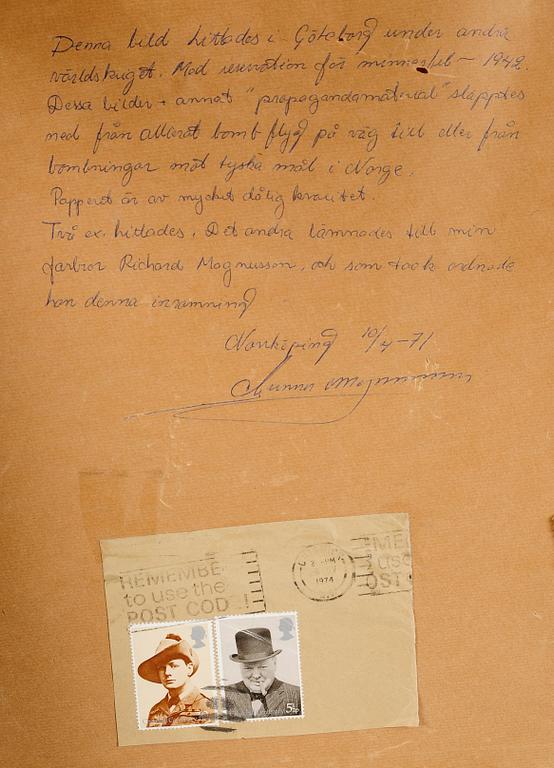 Denna bild hittades i Göteborg under andra
världskriget. Med reservation för minnesfel – 1942.
Dessa bilder + annat "propagandamaterial" släpptes
ned från allierat bombflyg på väg till eller från
bombningar mot tyska mål i Norge.
Papperet är av mycket dålig kvalitet.
Två ex. hittades. Det andra lämnades till min
farbror Richard Magnusson, och som tack ordnade
han denna inramning
Norrköping 10/4-71
Gunnar Magnusson
REMEMBE
to use the
POST COD !
PM
1974
ME
use
OST
5½p